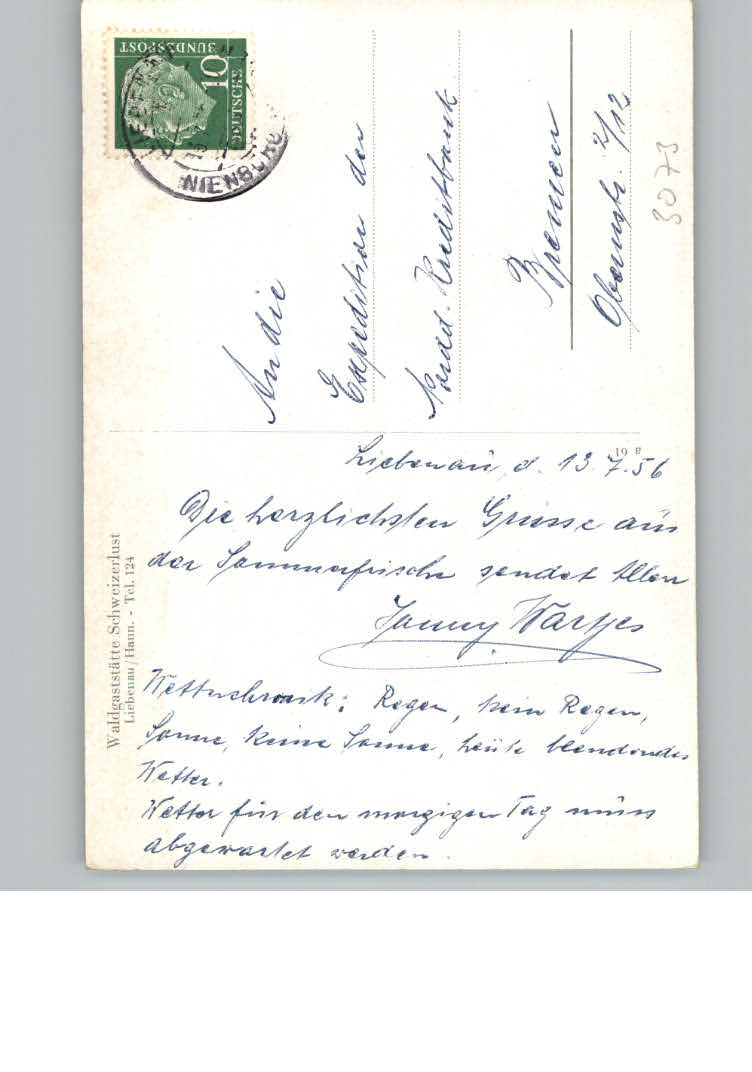 DEUTSCHE
BUNDESPOST
10
NIENBURG
An die
Expedition der
Nordd. Kreditbank
Bremen
Obernstr. 2/12
3073
a 61
Waldgaststätte Schweizerlust
Liebenau/Hann. - Tel. 124
Liebenau, d. 13.7.56
Die herzlichsten Grüsse aus
der Sommerfrische sendet Allen
Wartjes
Regen, kein Regen,
Sonne, keine Sonne, heute blendendes
Wetter.
Wetter für den morgigen Tag muss
abgewartet werden.